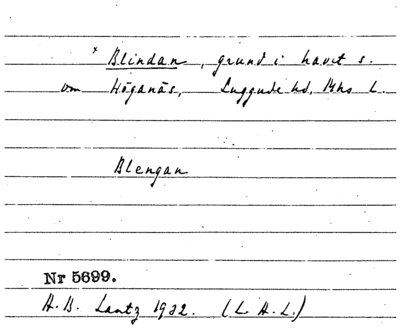 * Blindan, grund i havet s.
om Höganäs, Luggude hd, Mhs l.
Blengan
Nr 5699.
H. B. Lantz 1932. (L. A. L.)